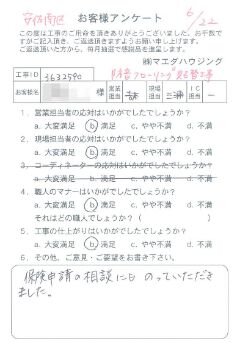 安佐南区
お客様アンケート
6/22
この度は工事のご用命を頂きありがとうございました。お手数で
すがご記入頂き、ご返送頂きますようお願い申し上げます。
ご返送頂いた方から、毎月抽選で感謝品を進呈します。
㈱マエダハウジング
フローリング貼替工事
工事ID 3632590 様 営業担当 現場担当 工事担当 IC担当
1．営業担当者の応対はいかがでしたでしょうか？
a. 大変満足 b. 満足 c. やや不満 d. 不満
2．現場担当者の応対はいかがでしたでしょうか？
a. 大変満足 b. 満足 c. やや不満 d. 不満
3．コーディネーターの応対はいかがでしたでしょうか？
a. 大変満足 b. 満足 c. やや不満 d. 不満
4．職人のマナーはいかがでしたでしょうか？
a. 大変満足 b. 満足 c. やや不満 d. 不満
それはどの職人でしょうか？（ ）
5．工事の仕上がりはいかがでしたでしょうか？
a. 大変満足 b. 満足 c. やや不満 d. 不満
6．その他、ご意見・ご要望をお書き下さい。
保険申請の相談にも のっていただき
ました。